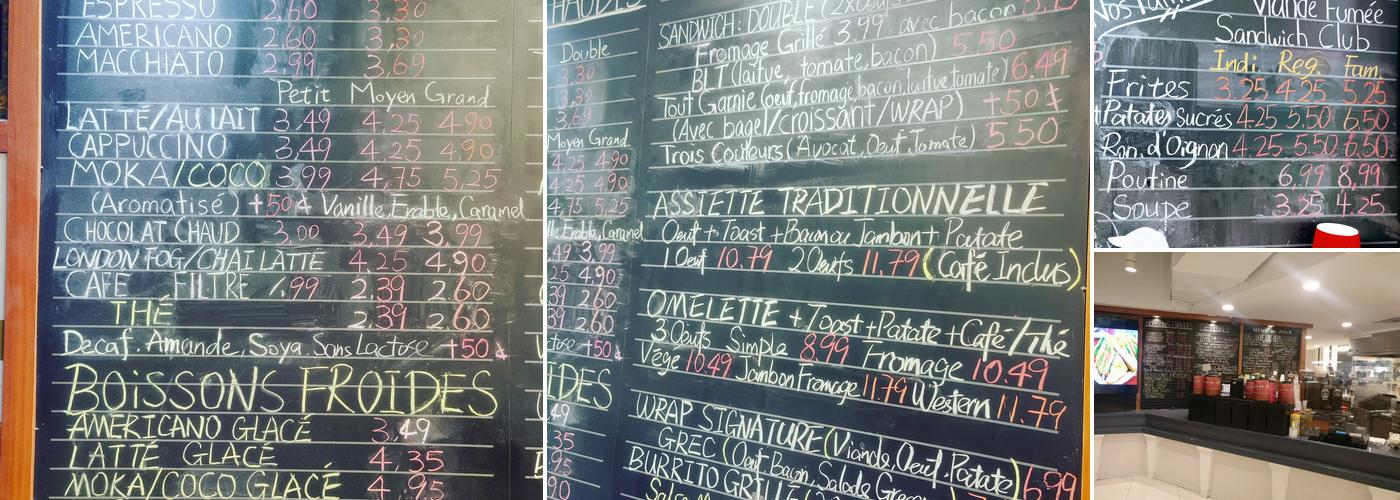 ESPRESSO 2,60 3,30
AMERICANO 2,60 3,30
MACCHIATO 2,99 3,69
Petit Moyen Grand
LATTÉ/AU LAIT 3,49 4,25 4,90
CAPPUCCINO 3,49 4,25 4,90
MOKA/COCO 3,99 4,75 5,25
(Aromatisé) +50¢ Vanille, Erable, Caramel
CHOCOLAT CHAUD 3,00 3,49 3,99
LONDON FOG/CHAI LATTE 4,25 4,90
CAFE FILTRE 1,99 2,39 2,60
THÉ 2,39 2,60
Decaf. Amande, Soya. Sans Lactose +50¢
BOISSONS FROIDES
AMERICANO GLACÉ 3,49
LATTÉ GLACÉ 4,35
MOKA/COCO GLACÉ 4,95
Double
3,30
3,30
3,69
Moyen Grand
4,25 4,90
4,25 4,90
4,75 5,25
Erable, Caramel
3,99
4,90
2,60
2,60
+50¢
SANDWICH: DOUBLE
Fromage Grillé 3.99 avec bacon
BLT (laitue, tomate, bacon) 5.50
Tout Garnie (oeuf, fromage, bacon, laitue, tomate) 6.49
(Avec bagel/croissant/WRAP) +50¢
Trois Couleurs (Avocat, Oeuf, Tomate) 5.50
ASSIETTE TRADITIONNELLE
Oeuf + Toast + Bacon ou Jambon + Patate
1 Oeuf 10.79 2 Oeufs 11.79 (Café Inclus)
OMELETTE + Toast + Patate + Café/Thé
3 Oeufs Simple 8.99 Fromage 10.49
Vége 10.49 Jambon Fromage 11.79 Western 11.79
WRAP SIGNATURE (Viande, Oeuf, Patate)
GREC (Oeuf, Bacon, Salade 6.99
BURRITO GRILLÉ
Viande Fumée
Sandwich Club
Indi. Reg. Fam.
Frites 3,25 4,25 5,25
Patates Sucrés 4,25 5,50 6,50
Ron. d'Oignon 4,25 5,50 6,50
Poutine 6,99 8,99
Soupe 3,25 4,25